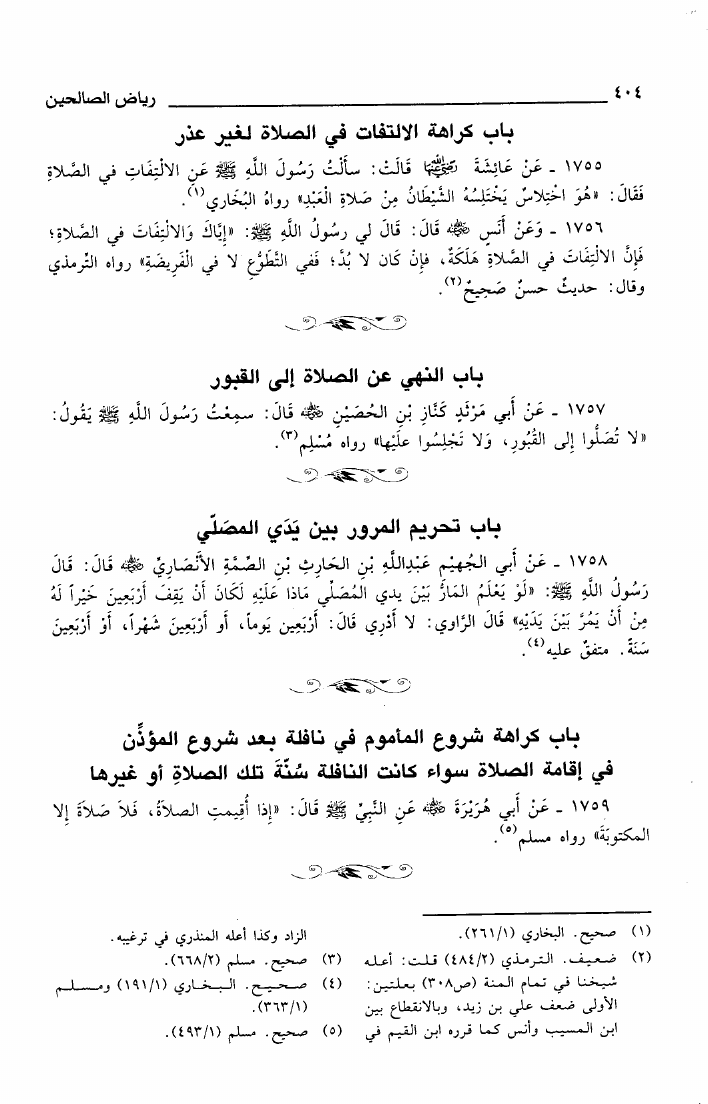 ٤٠٤ رياض الصالحين
باب كراهة الالتفات في الصلاة لغير عذر
١٧٥٥ ـ عَنْ عَائِشَةَ رضي الله عنها قَالَتْ: سأَلْتُ رَسُولَ اللَّهِ ﷺ عَنِ الالْتِفَاتِ في الصَّلاةِ
فَقَالَ: «هُوَ اخْتِلاسٌ يَخْتَلِسُهُ الشَّيْطَانُ مِنْ صَلاةِ الْعَبْدِ» رواهُ البُخَاري(١).
١٧٥٦ ـ وَعَنْ أَنَسٍ رضي الله عنه قَالَ: قَالَ لي رسُولُ اللَّهِ ﷺ: «إِيَّاكَ وَالالْتِفَاتَ في الصَّلاةِ؛
فَإِنَّ الالْتِفَاتَ في الصَّلاةِ هَلَكَةٌ، فإِنْ كَان لا بُدَّ؛ ففي التَّطَوُّعِ لا في الْفَرِيضَةِ» رواه التِّرمذي
وقال: حديثٌ حسنٌ صَحِيحٌ(٢).
باب النهي عن الصلاة إلى القبور
١٧٥٧ ـ عَنْ أَبي مَرْثَدٍ كَنَّازِ بْنِ الحُصَيْنِ رضي الله عنه قَالَ: سمِعْتُ رَسُولَ اللَّهِ ﷺ يَقُولُ:
«لا تُصَلُّوا إلى القُبُورِ، وَلا تَجْلِسُوا علَيْها» رواه مُسْلِم(٣).
باب تحريم المرور بين يَدَي المصَلّي
١٧٥٨ ـ عَنْ أَبي الجُهَيْمِ عَبْدِاللَّهِ بْنِ الحَارِثِ بْنِ الصِّمَّةِ الأَنْصَارِيِّ رضي الله عنه قَالَ: قَالَ
رَسُولُ اللَّهِ ﷺ: «لَوْ يَعْلَمُ المَارُّ بَيْنَ يدي المُصَلِّي مَاذا عَلَيْهِ لَكَانَ أَنْ يَقِفَ أَرْبَعِينَ خَيْراً لَهُ
مِنْ أَنْ يَمُرَّ بَيْنَ يَدَيْهِ» قَالَ الرَّاوي: لا أَدْرِي قَالَ: أَرْبَعِين يَوماً، أَو أَرْبَعِينَ شَهْراً، أَوْ أَرْبَعِينَ
سَنَةً. متفقٌ عليه(٤).
باب كراهة شروع المأموم في نافلة بعد شروع المؤذِّن
في إقامة الصلاة سواء كانت النافلة سُنَّةَ تلك الصلاةِ أو غيرها
١٧٥٩ ـ عَنْ أَبي هُرَيْرَةَ رضي الله عنه عَنِ النَّبيِّ ﷺ قَالَ: «إِذا أُقِيمتِ الصلاَةُ، فَلاَ صَلاَةَ إِلا
المكتوبَةَ» رواه مسلم(٥).
(١) صحيح. البخاري (٢٦١/١).
(٢) ضعيف. الترمذي (٤٨٤/٢) قلت: أعله
شيخنا في تمام المنة (ص٣٠٨) بعلتين:
الأولى ضعف علي بن زيد، وبالانقطاع بين
ابن المسيب وأنس كما قرره ابن القيم في
الزاد وكذا أعله المنذري في ترغيبه.
(٣) صحيح. مسلم (٦٦٨/٢).
(٤) صحيح. البخاري (١٩١/١) ومسلم
(٣٦٣/١).
(٥) صحيح. مسلم (٤٩٣/١).